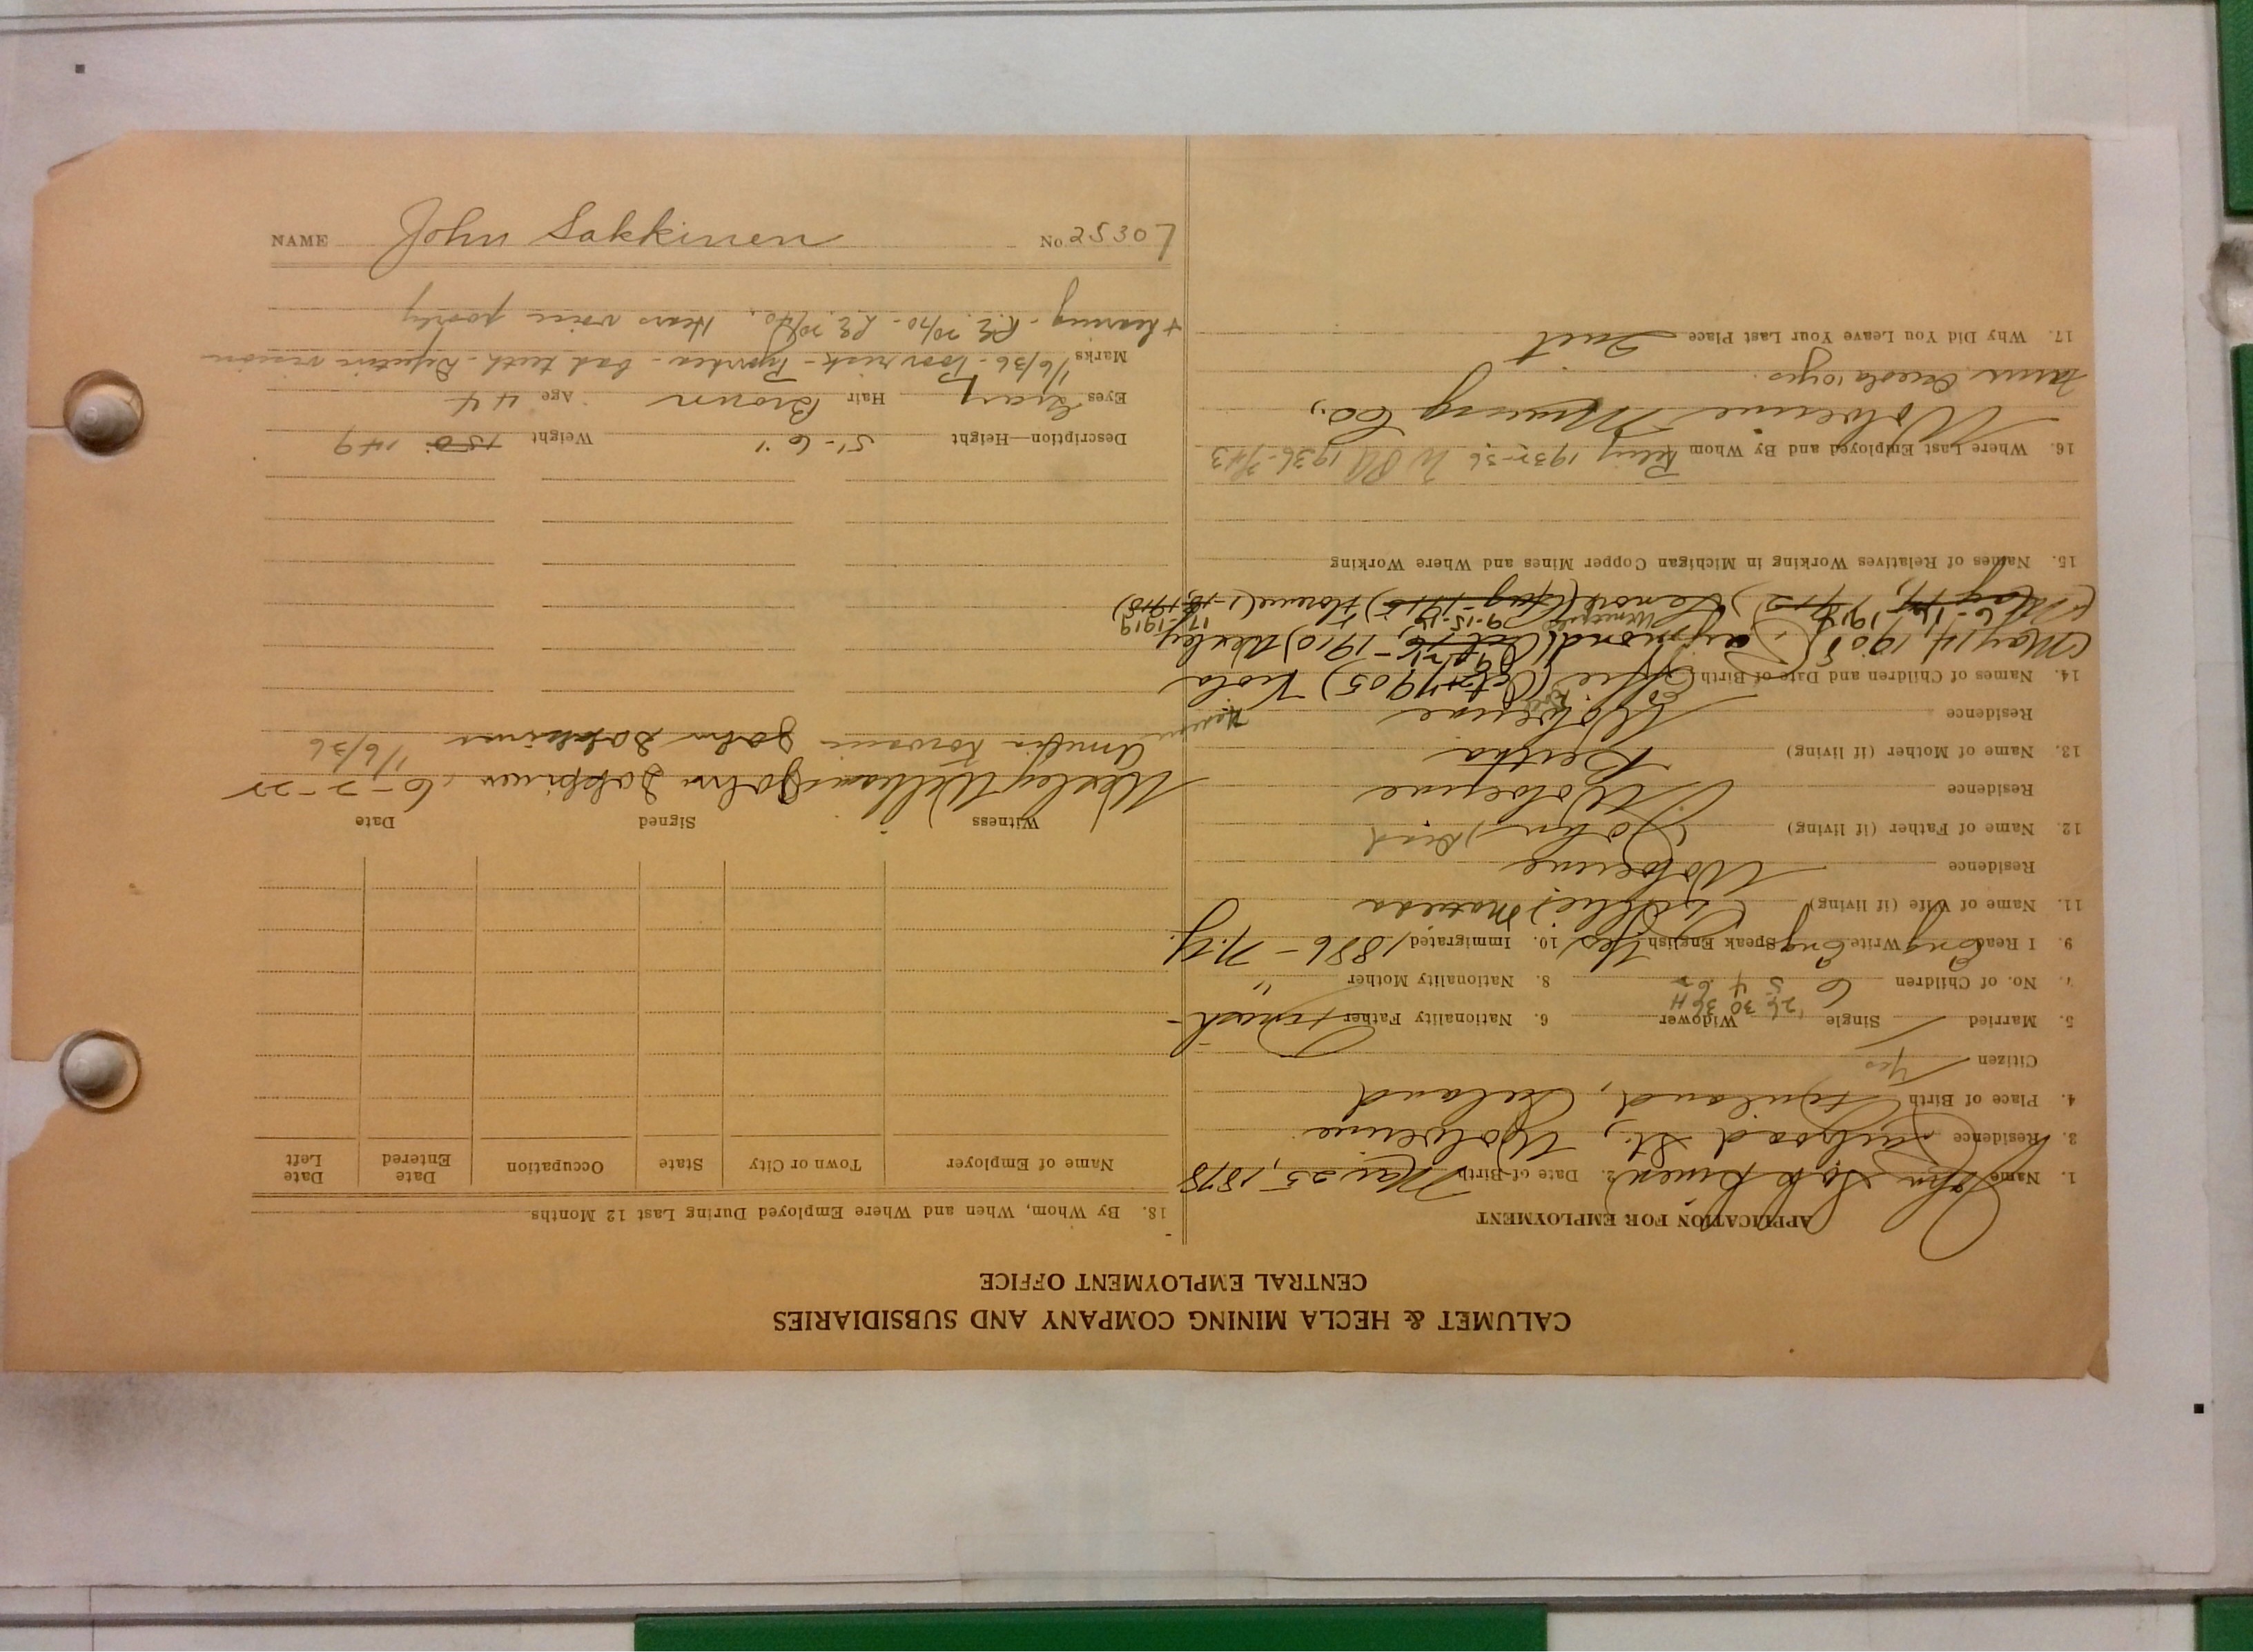 CALUMET & HECLA MINING COMPANY AND SUBSIDIARIES
CENTRAL EMPLOYMENT OFFICE
APPLICATION FOR EMPLOYMENT
1. Name John Sakkinen 2. Date of Birth Mar 25, 1878
3. Residence Railroad St., Wolverine
4. Place of Birth Finland, Oceland
Citizen Yes
5. Married Single Widower 6. Nationality Father Finnish
'26 30 36 H
7. No. of Children 6 5 4 8. Nationality Mother "
9. I Read Eng Write Eng Speak English Yes 10. Immigrated 1886 - N.Y.
11. Name of Wife (if living) Matilda
Residence Wolverine
12. Name of Father (if living) John Dead
Residence Wolverine
13. Name of Mother (if living) Bertha
Residence Wolverine
14. Names of Children and Date of Birth Effie (Oct 1905) Viola
(May 14, 1908) Raymond (Oct 1910) Wesley
9-15-14 17-1919
1912) Lenore (Aug-1915) Florence (1-18-1918)
15. Names of Relatives Working in Michigan Copper Mines and Where Working
16. Where Last Employed and By Whom 1936 WPA 1936-
Wolverine Mining Co.,
Farm Oceola 10yrs.
17. Why Did You Leave Your Last Place Quit
18. By Whom, When and Where Employed During Last 12 Months
Name of Employer Town or City State Occupation Date Entered Date Left
Witness Signed Date
Wesley Williams John Sakkinen 6-2-22
John Sakkinen 1/6/36
Description—Height 5'-6" Weight 150 149
Eyes Gray Hair Brown Age 44
Marks 1/6/36 - Poor risk - Pyorrhea - bad teeth - Defective vision
+ hearing - R.E. 20/70 - L.E. 20/40. Hears voice poorly
NAME John Sakkinen No. 25307